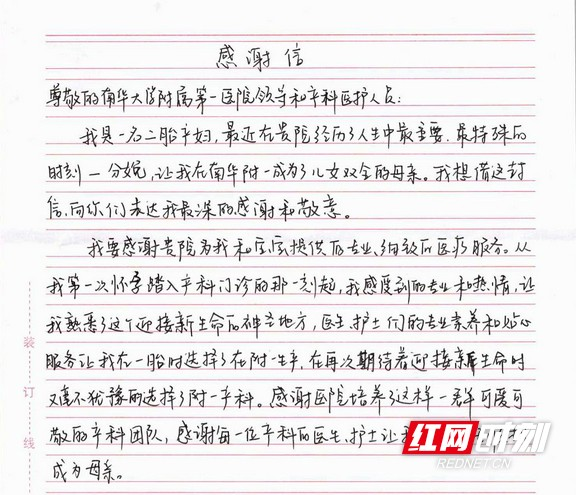 感谢信
尊敬的南华大学附属第一医院领导和产科医护人员:
我是一名二胎产妇,最近在贵院经历了人生中最主要、最特殊的
时刻—分娩,让我在南华附一成为了儿女双全的母亲。我想借这封
信,向你们表达我最深的感谢和敬意。
我要感谢贵院为我和宝宝提供的专业、细致的医疗服务。从
我第一次怀孕踏入产科门诊的那一刻起,我感受到的专业和热情,让
我熟悉了这个迎接新生命的神圣地方,医生、护士们的专业素养和贴心
服务让我在一胎时选择了在附一生产,在再次期待着迎接新生命时
又毫不犹豫的选择了附一产科。感谢医院培养了这样一群可爱可
敬的产科团队,感谢每一位产科的医生、护士让
成为母亲。
装
订
线
红网时刻
REDNET.CN